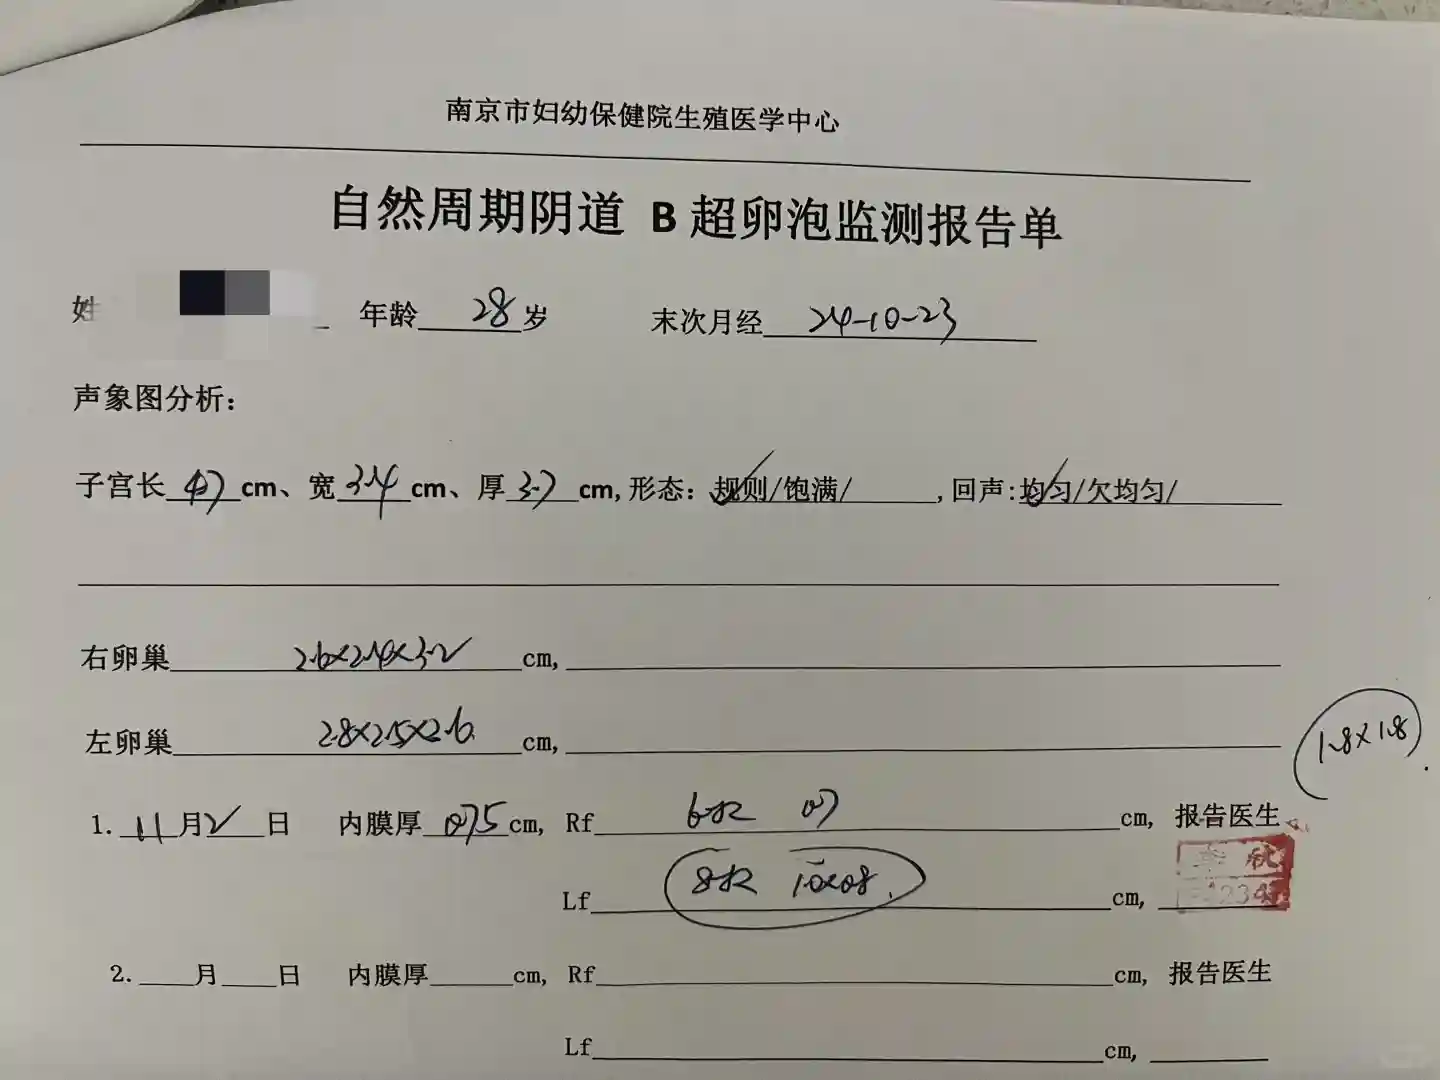 南京市妇幼保健院生殖医学中心
自然周期阴道 B 超卵泡监测报告单
姓 年龄 28 岁 末次月经 24-10-23
声象图分析：
子宫长 4.7 cm、宽 3.4 cm、厚 3.7 cm,形态：规则/饱满/ ,回声:均匀/欠均匀/
右卵巢 2.6×2.4×3.2 cm,
左卵巢 2.8×2.5×2.6 cm,
1.8×1.8
1. 11 月 2 日 内膜厚 0.75 cm, Rf 6枚 0.7 cm, 报告医生
秋
Lf 8枚 1.0×0.8 cm,
2. 月 日 内膜厚 cm, Rf cm, 报告医生
Lf cm,